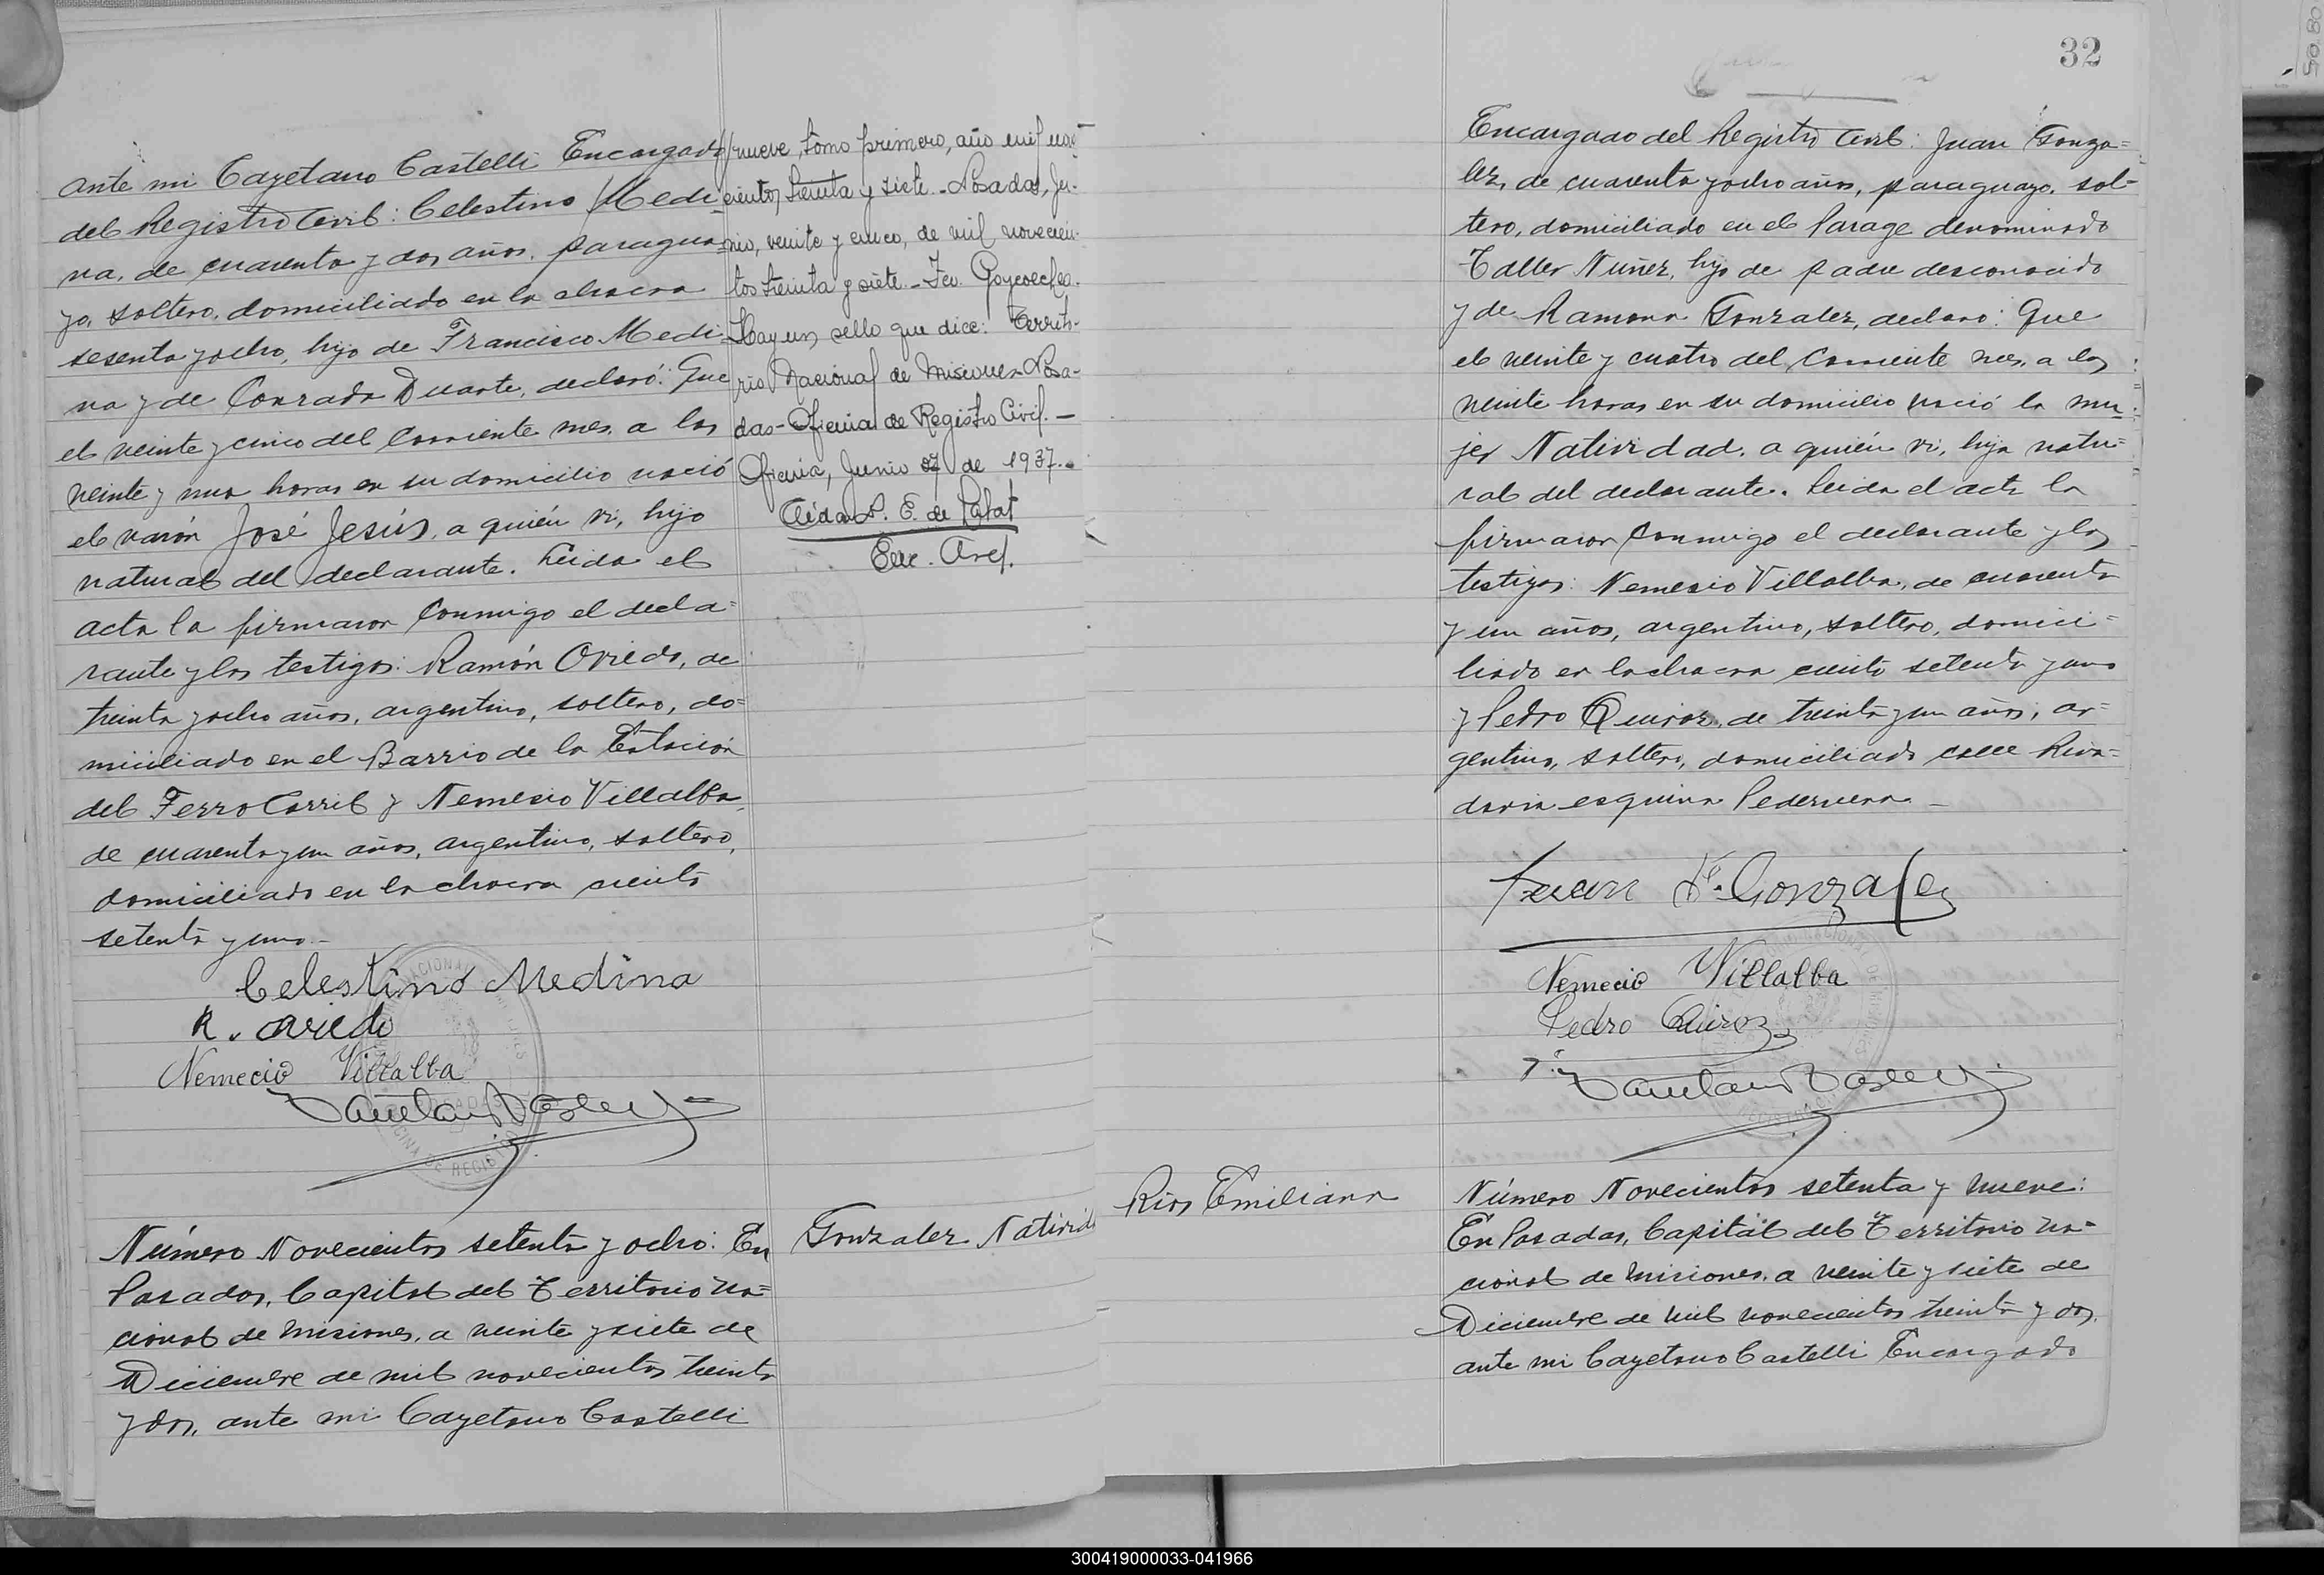 ante mi Cayetano Castelli Encargado
del Registro Civil: Celestino Medi
na, de cuarenta y dos años, paragua
yo, soltero, domiciliado en la chacra
sesenta y ocho, hijo de Francisco Medi
na y de Conrada Duarte, declaró: Que
el veinte y cinco del corriente mes, a las
veinte y una horas en su domicilio nació
el varón José Jesús, a quién vi, hijo
natural del declarante. Leida el
acta la firmaron conmigo el decla=
rante y los testigos: Ramón Oviedo, de
treinta y ocho años, argentino, soltero, do=
miciliado en el Barrio de la Estación
del Ferro Carril y Nemesio Villalba,
de cuarenta y un años, argentino, soltero,
domiciliado en la chacra ciento
setenta y uno.-
Celestino Medina
R. Oviedo
Nemecio Villalba
Número Novecientos setenta y ocho: En
Posadas, Capital del Territorio Na=
cional de Misiones, a veinte y siete de
Diciembre de mil novecientos treinta
y dos, ante mi Cayetano Castelli
nueve, tomo primero, año mil nove
cientos treinta y siete.- Posadas, Ju-
nio, veinte y cinco, de mil novecien-
tos treinta y siete.- Fco. Goycoechea.
Hay un sello que dice: Territo-
rio Nacional de Misiones - Posa-
das - Oficina de Registro Civil.-
Oficina, Junio de 1937.-
Gonzalez Nativid
32
Encargado del Registro Civil: Juan Gonza=
lez, de cuarenta y ocho años, paraguayo, sol-
tero, domiciliado en el Parage denominado
Taller Nuñez, hijo de padre desconocido
y de Ramona Gonzalez, declaró: Que
el veinte y cuatro del corriente mes, a las
veinte horas en su domicilio nació la mu=
jer Natividad, a quién vi, hija natu=
ral del declarante. Leida el acta la
firmaron conmigo el declarante y los
testigos: Nemesio Villalba, de cuarenta
y un años, argentino, soltero, domici=
liado en la chacra ciento setenta y uno
y Pedro Quiroz, de treinta y un años, ar=
gentino, soltero, domiciliado calle Riva=
davia esquina Pedernera.-
Juan F. Gonzalez
Nemecio Villalba
Pedro Quiroz
Rios Emiliana
Número Novecientos setenta y nueve:
En Posadas, Capital del Territorio Na=
cional de Misiones, a veinte y siete de
Diciembre de mil novecientos treinta y dos,
ante mi Cayetano Castelli Encargado
300419000033-041966